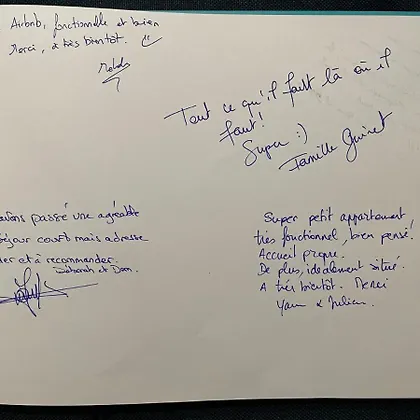 Airbnb, fonctionnelle et bien
Merci, à très bientôt.
Tout ce qu'il faut là où il
faut!
Super :)
Famille Guinet
avons passé une agréable
séjour court mais adresse
et à recommander.
Déborah et Dom.
Super petit appartement,
très fonctionnel, bien pensé!
Accueil propre.
De plus, idéalement situé.
A très bientôt. Merci
Yann & Julien.